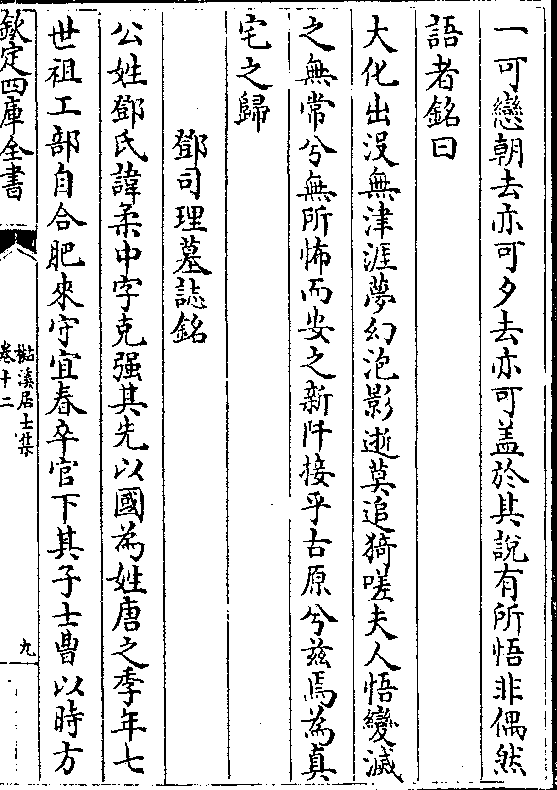 一可戀朝去亦可夕去亦可盖於其說有所悟非偶然
語者銘曰
大化出没無津涯夢幻泡影逝莫追猗嗟夫人悟變滅
之無常兮無所怖而安之新阡接乎古原兮兹焉為真
宅之歸
鄧司理墓誌銘
公姓鄧氏諱柔中字克强其先以國為姓唐之季年七
世祖工部自合肥來守宜春卒官下其子士曺以時方
欽定四庫全書
㭕溪居士集
卷十二
九